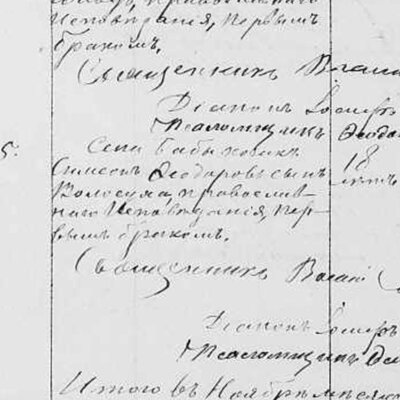 Исповѣданія, первымъ
бракомъ.
Священникъ
Діаконъ Іосифъ
Псаломщикъ Ѳеодо
5.
Села Бабы козакъ
18
Симеонъ Ѳеодоровъ сынъ
лѣтъ
Волосуха, православ-
наго Исповѣданія, пер-
вымъ бракомъ.
Священникъ
Діаконъ Іосифъ
Псаломщикъ Ѳе
Итого въ Ноябрѣ мѣсяц